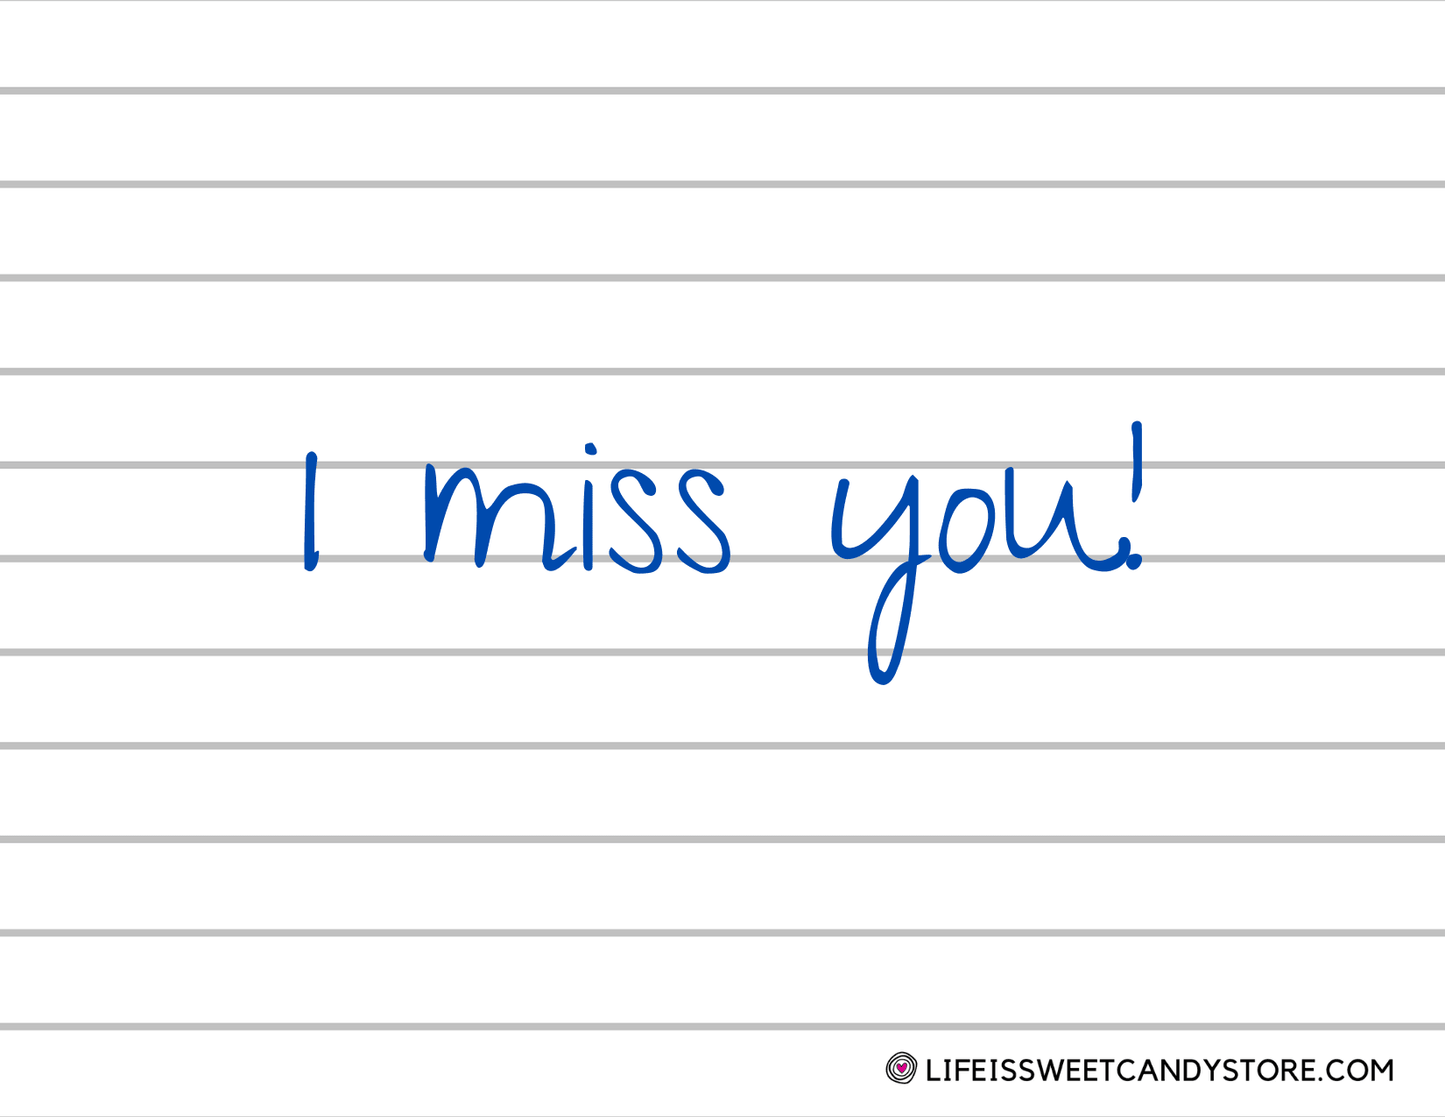 I miss you!
LIFEISSWEETCANDYSTORE.COM